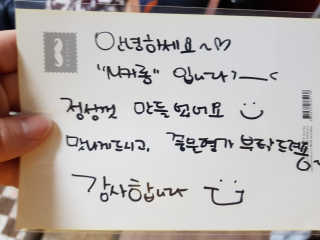 안녕하세요~♡
"사카롱" 입니다ㅋ
정성껏 만들었어요
맛나게드시고, 좋은평가 부탁드려요~
감사합니다